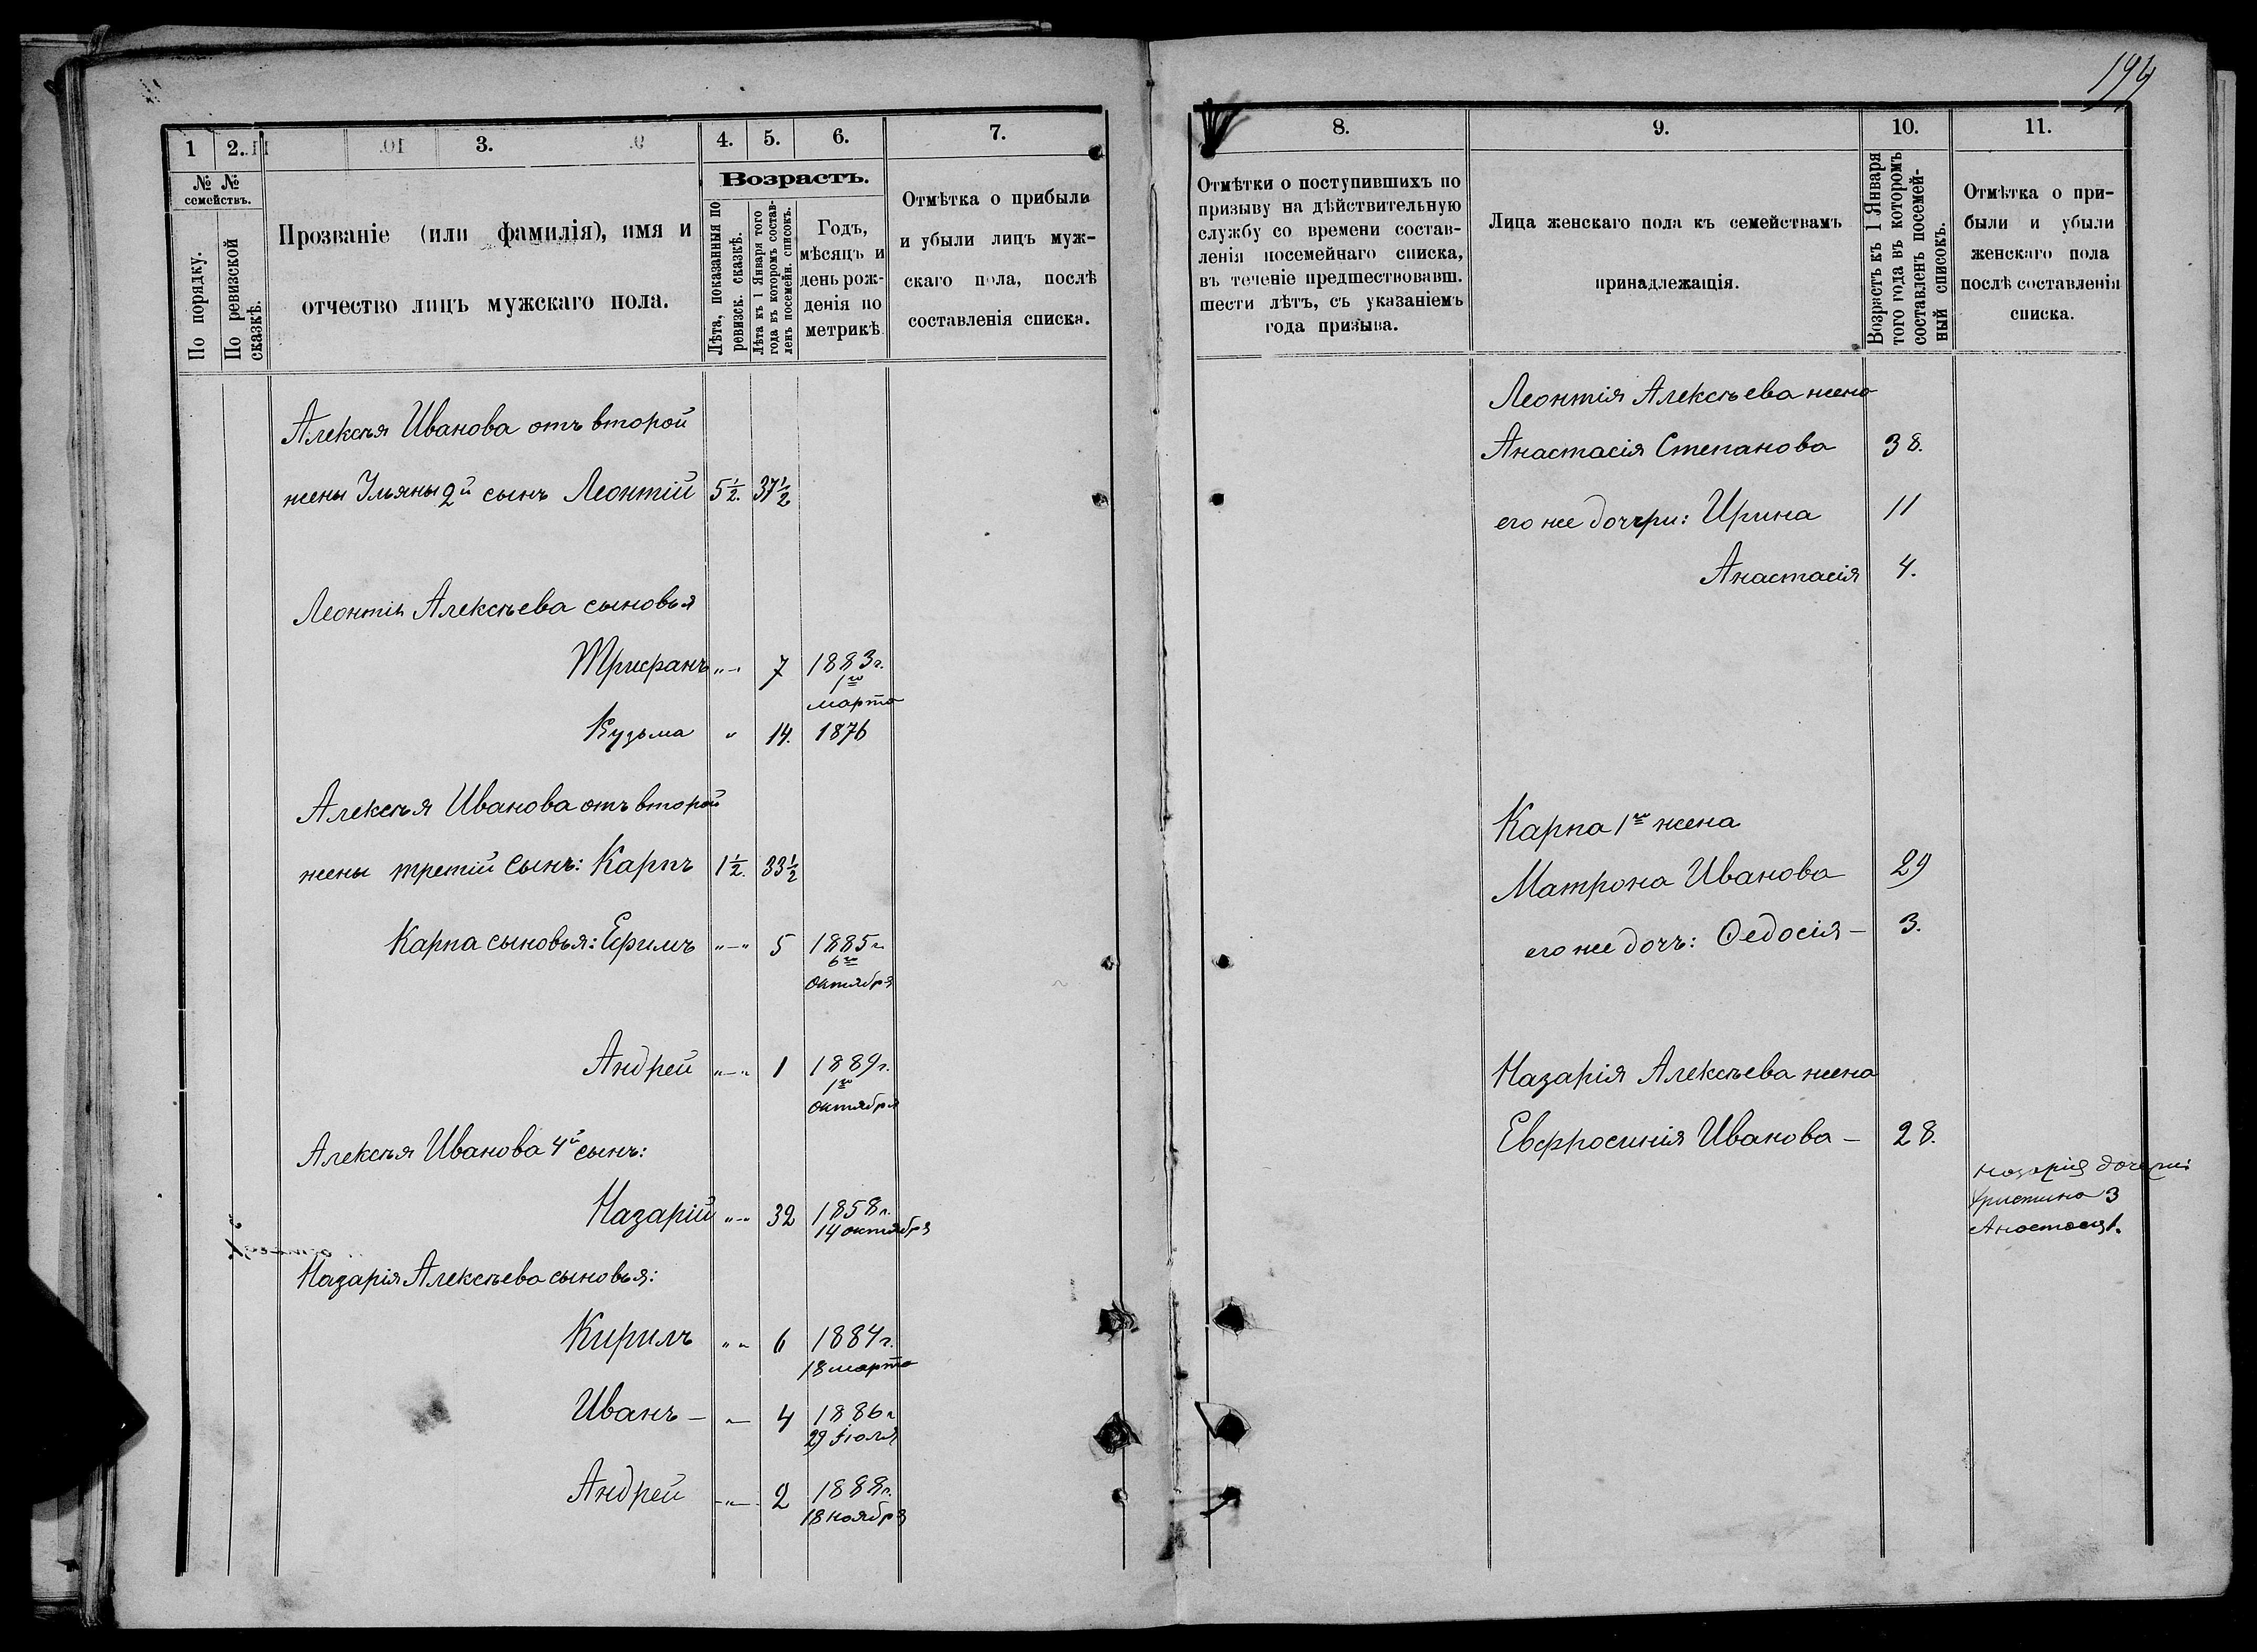 194
1
2.
3.
4.
5.
6.
7.
№ №
семействъ.
По порядку.
По ревизской сказкѣ.
Прозваніе (или фамилія), имя и
отчество лицъ мужскаго пола.
Возрастъ.
Лѣта, показанныя по
ревизск. сказкѣ.
Лѣта къ 1 Января того
года въ которомъ состав-
ленъ посемейн. списокъ.
Годъ,
мѣсяцъ и
день рож-
денія по
метрикѣ
Отмѣтка о прибыли
и убыли лицъ муж-
скаго пола, послѣ
составленія списка.
Алексѣя Иванова отъ второй
жены Ульяны 2й сынъ Леонтій 5½. 37½
Леонтія Алексѣева сыновья
Трифанъ „-„ 7 1883г.
1го
марта
Кузьма „ 14. 1876
Алексѣя Иванова отъ второй
жены третій сынъ: Карпъ 1½. 33½
Карпа сыновья: Ефимъ „-„ 5 1885г.
6го
октября
Андрей „-„ 1 1889г.
1го
октября
Алексѣя Иванова 4й сынъ:
Назарій „-„ 32 1858г.
14 октября
Назарія Алексѣева сыновья:
Кирилъ „-„ 6 1884г.
18 марта
Иванъ – „- 4 1886г.
29 Іюля
Андрей -„- 2 1888г.
18 ноября
8.
9.
10.
11.
Отмѣтки о поступившихъ по
призыву на дѣйствительную
службу со времени состав-
ленія посемейнаго списка,
въ теченіе предшествовавш.
шести лѣтъ, съ указаніемъ
года призыва.
Лица женскаго пола къ семействамъ
принадлежащія.
Возрастъ къ 1 Января
того года въ которомъ
составленъ посемей-
ный списокъ.
Отмѣтка о при-
были и убыли
женскаго пола
послѣ составленія
списка.
Леонтія Алексѣева жена
Анастасія Степанова 38.
его же дочери: Ирина 11
Анастасія 4.
Карпа 1го жена
Матрона Иванова 29
его же дочь: Ѳедосія – 3.
Назарія Алексѣева жена
Евфросинія Иванова – 28.
Назарія дочери:
Христина 3
Анастасія 1.